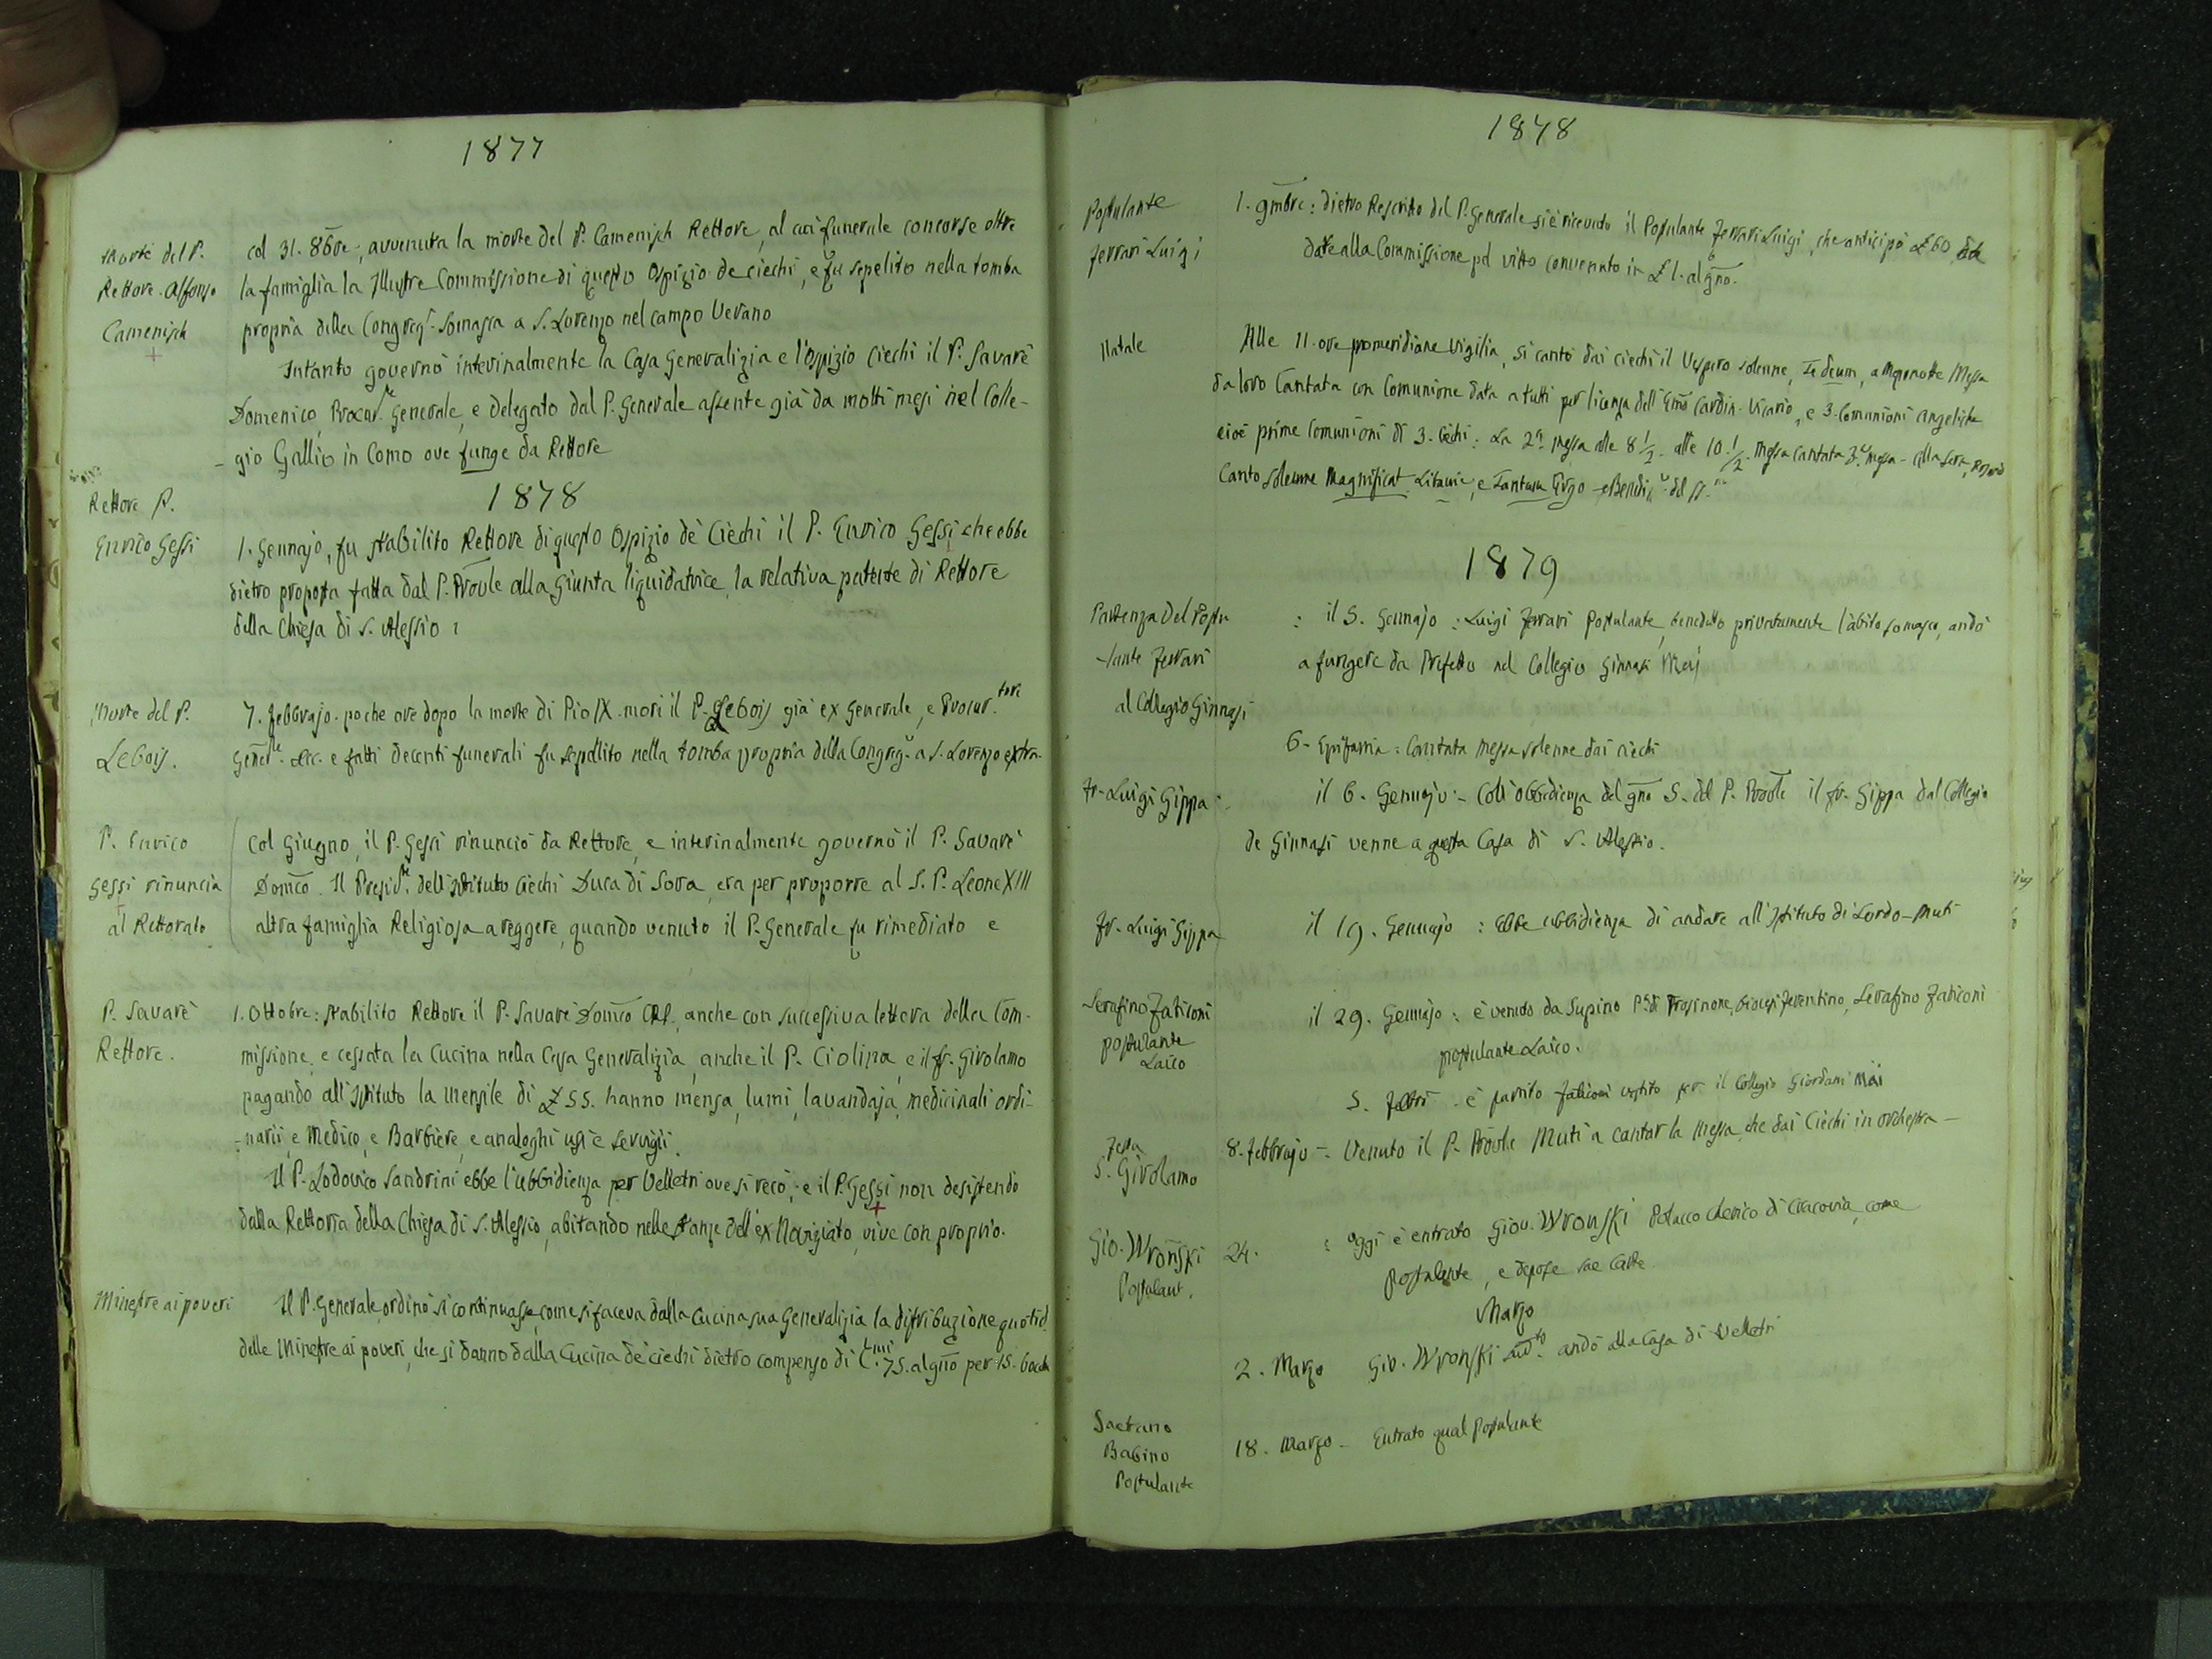 1877
Morte del P.
Rettore Alfonso
Camenisch
col 31. 8bre; avvenuta la morte del P. Camenisch Rettore, al cui funerale concorse oltre
la famiglia la Illustre Commissione di questo Ospizio de ciechi, e fu sepelito nella tomba
propria della Congreg. Somasca a S. Lorenzo nel campo Verano
Intanto governò interinalmente la Casa Generalizia e l'Ospizio Ciechi il P. Savarè
Domenico, Procur.re Generale, e delegato dal P. Generale assente già da molti mesi nel Colle-
-gio Gallio in Como ove funge da Rettore
1878
Rettore P.
Enrico Gessi
1. Gennajo, fu stabilito Rettore di questo Ospizio dè Ciechi il P. Enrico Gessi che ebbe
dietro proposta fatta dal P. Provle alla Giunta liquidatrice, la relativa patente di Rettore
della Chiesa di S. Alessio
Morte del P.
Lebois.
7. Febbrajo. poche ore dopo la morte di Pio IX. morì il P. Lebois già ex Generale, e Procur.tore
Gener.le etc. e fatti decenti funerali fu sepellito nella tomba propria della Congreg. a S. Lorenzo extra.
P. Enrico
Gessi rinuncia
al Rettorato
Col Giugno, il P. Gessi rinunciò da Rettore, e interinalmente governò il P. Savarè
Domco. Il Presid.te dell'Istituto Ciechi Duca di Sora, era per proporre al S. P. Leone XIII
altra famiglia Religiosa a reggere, quando venuto il P. Generale fu rimediato e
P. Savarè
Rettore.
1. Ottobre: stabilito Rettore il P. Savarè Domco CRS, anche con successiva lettera della Com-
missione, e cessata la Cucina nella Casa Generalizia, anche il P. Ciolina, e il fr. Girolamo
pagando all'Istituto la mensile di £ 55. hanno mensa, lumi, lavandaja, medicinali ordi-
-narii, e Medico, e Barbiere, e analoghi usi e servigii.
Il P. Lodovico Sandrini ebbe l'ubbidienza per Velletri ove si recò; e il P. Gessi non desistendo
dalla Rettoria della Chiesa di S. Alessio, abitando nelle stanze dell'ex Noviziato, vive con proprio.
Minestre ai poveri
Il P. Generale, ordinò si continuasse, come si faceva dalla cucina sua Generalizia la distribuzione quotid.
delle Minestre ai poveri, che si danno dalla Cucina dè ciechi dietro compenso di C.mi 75. al gno per 15.
1878
Postulante
Ferrari Luigi
1. 9mbre: dietro Rescritto del P. Generale si è ricevuto il Postulante Ferrari Luigi, che anticipò £ 60,
date alla Commissione pel vitto convenuto in £ 1. al gno.
Natale
Alle 11. ore promeridiane Vigilia, si cantò dai ciechi il Vespero solenne, Te deum, a Mezzanotte Messa
da loro Cantata con Comunione data a tutti per licenza dell'Emo Cardin. Vicario, e 3. Comunioni angeliche
cioè prime Comunioni di 3. Ciechi: La 2a messa alle 8 1/2. alle 10. 1/2. Messa cantata 3a messa - alla sera,
Canto solenne Magnificat Litanie, e Tantum Ergo
1879
Partenza del Postu
-lante Ferrari
al Collegio Ginnasi
: il 5. Gennajo: Luigi Ferrari Postulante, benedetto privatamente l'abito somasco, andò
a fungere da Prefetto nel Collegio Ginnasi
6. Epifania: Cantata messa solenne dai ciechi
fr. Luigi Gippa
il 6. Gennajo - Coll'obbedienza del gno 5. del P. Provle il fr. Gippa dal Collegio
de Ginnasi venne a questa Casa di S. Alessio.
fr. Luigi Gippa
il 19. Gennajo: Ebbe ubbidienza di andare all'Istituto di Sordo-Muti
Serafino Zaticoni
postulante
Laico
il 29. Gennajo: è venuto da Supino Pa di Frosinone, Diocesi Ferentino, Serafino Zaticoni
postulante Laico.
5. Febbr. - è partito Zaticoni vestito per il Collegio Giordani
Festa
S. Girolamo
8. Febbrajo - Venuto il P. Provle Muti a cantar la Messa, che dai Ciechi in orchestra -
Gio. Wronski
Postulant.
24. : oggi è entrato Giov. Wronski Polacco cherico di Cracovia, come
Postulante, e depose sue carte
Marzo
2. Marzo Gio. Wronski andò alla Casa di Velletri
Gaetano
Babino
Postulante
18. Marzo - Entrato qual Postulante